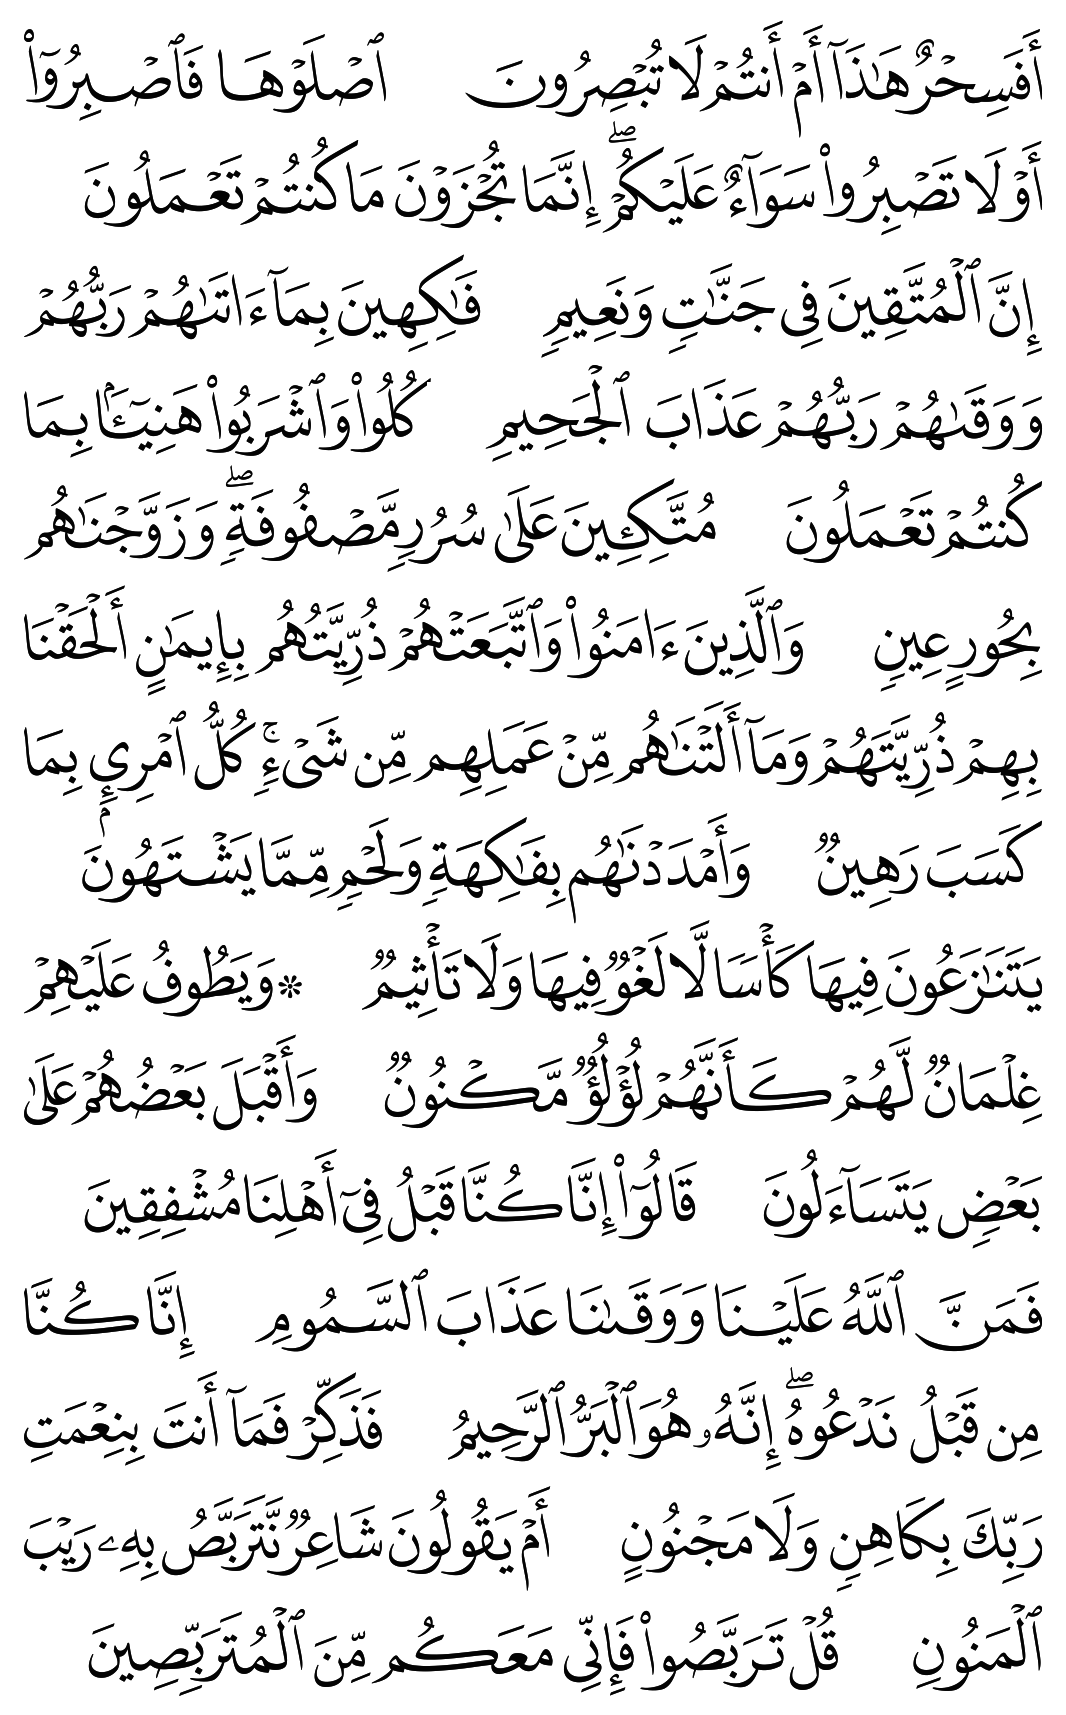 أَفَسِحْرٌ هَٰذَآ أَمْ أَنتُمْ لَا تُبْصِرُونَ ٱصْلَوْهَا فَٱصْبِرُوٓا۟
أَوْ لَا تَصْبِرُوا۟ سَوَآءٌ عَلَيْكُمْ ۖ إِنَّمَا تُجْزَوْنَ مَا كُنتُمْ تَعْمَلُونَ
إِنَّ ٱلْمُتَّقِينَ فِى جَنَّٰتٍ وَنَعِيمٍ فَٰكِهِينَ بِمَآ ءَاتَىٰهُمْ رَبُّهُمْ
وَوَقَىٰهُمْ رَبُّهُمْ عَذَابَ ٱلْجَحِيمِ كُلُوا۟ وَٱشْرَبُوا۟ هَنِيٓـًٔۢا بِمَا
كُنتُمْ تَعْمَلُونَ مُتَّكِـِٔينَ عَلَىٰ سُرُرٍ مَّصْفُوفَةٍ ۖ وَزَوَّجْنَٰهُم
بِحُورٍ عِينٍ وَٱلَّذِينَ ءَامَنُوا۟ وَٱتَّبَعَتْهُمْ ذُرِّيَّتُهُم بِإِيمَٰنٍ أَلْحَقْنَا
بِهِمْ ذُرِّيَّتَهُمْ وَمَآ أَلَتْنَٰهُم مِّنْ عَمَلِهِم مِّن شَىْءٍ ۚ كُلُّ ٱمْرِئٍۭ بِمَا
كَسَبَ رَهِينٌ وَأَمْدَدْنَٰهُم بِفَٰكِهَةٍ وَلَحْمٍ مِّمَّا يَشْتَهُونَ
يَتَنَٰزَعُونَ فِيهَا كَأْسًا لَّا لَغْوٌ فِيهَا وَلَا تَأْثِيمٌ ۞ وَيَطُوفُ عَلَيْهِمْ
غِلْمَانٌ لَّهُمْ كَأَنَّهُمْ لُؤْلُؤٌ مَّكْنُونٌ وَأَقْبَلَ بَعْضُهُمْ عَلَىٰ
بَعْضٍ يَتَسَآءَلُونَ قَالُوٓا۟ إِنَّا كُنَّا قَبْلُ فِىٓ أَهْلِنَا مُشْفِقِينَ
فَمَنَّ ٱللَّهُ عَلَيْنَا وَوَقَىٰنَا عَذَابَ ٱلسَّمُومِ إِنَّا كُنَّا
مِن قَبْلُ نَدْعُوهُ ۖ إِنَّهُۥ هُوَ ٱلْبَرُّ ٱلرَّحِيمُ فَذَكِّرْ فَمَآ أَنتَ بِنِعْمَتِ
رَبِّكَ بِكَاهِنٍ وَلَا مَجْنُونٍ أَمْ يَقُولُونَ شَاعِرٌ نَّتَرَبَّصُ بِهِۦ رَيْبَ
ٱلْمَنُونِ قُلْ تَرَبَّصُوا۟ فَإِنِّى مَعَكُم مِّنَ ٱلْمُتَرَبِّصِينَ